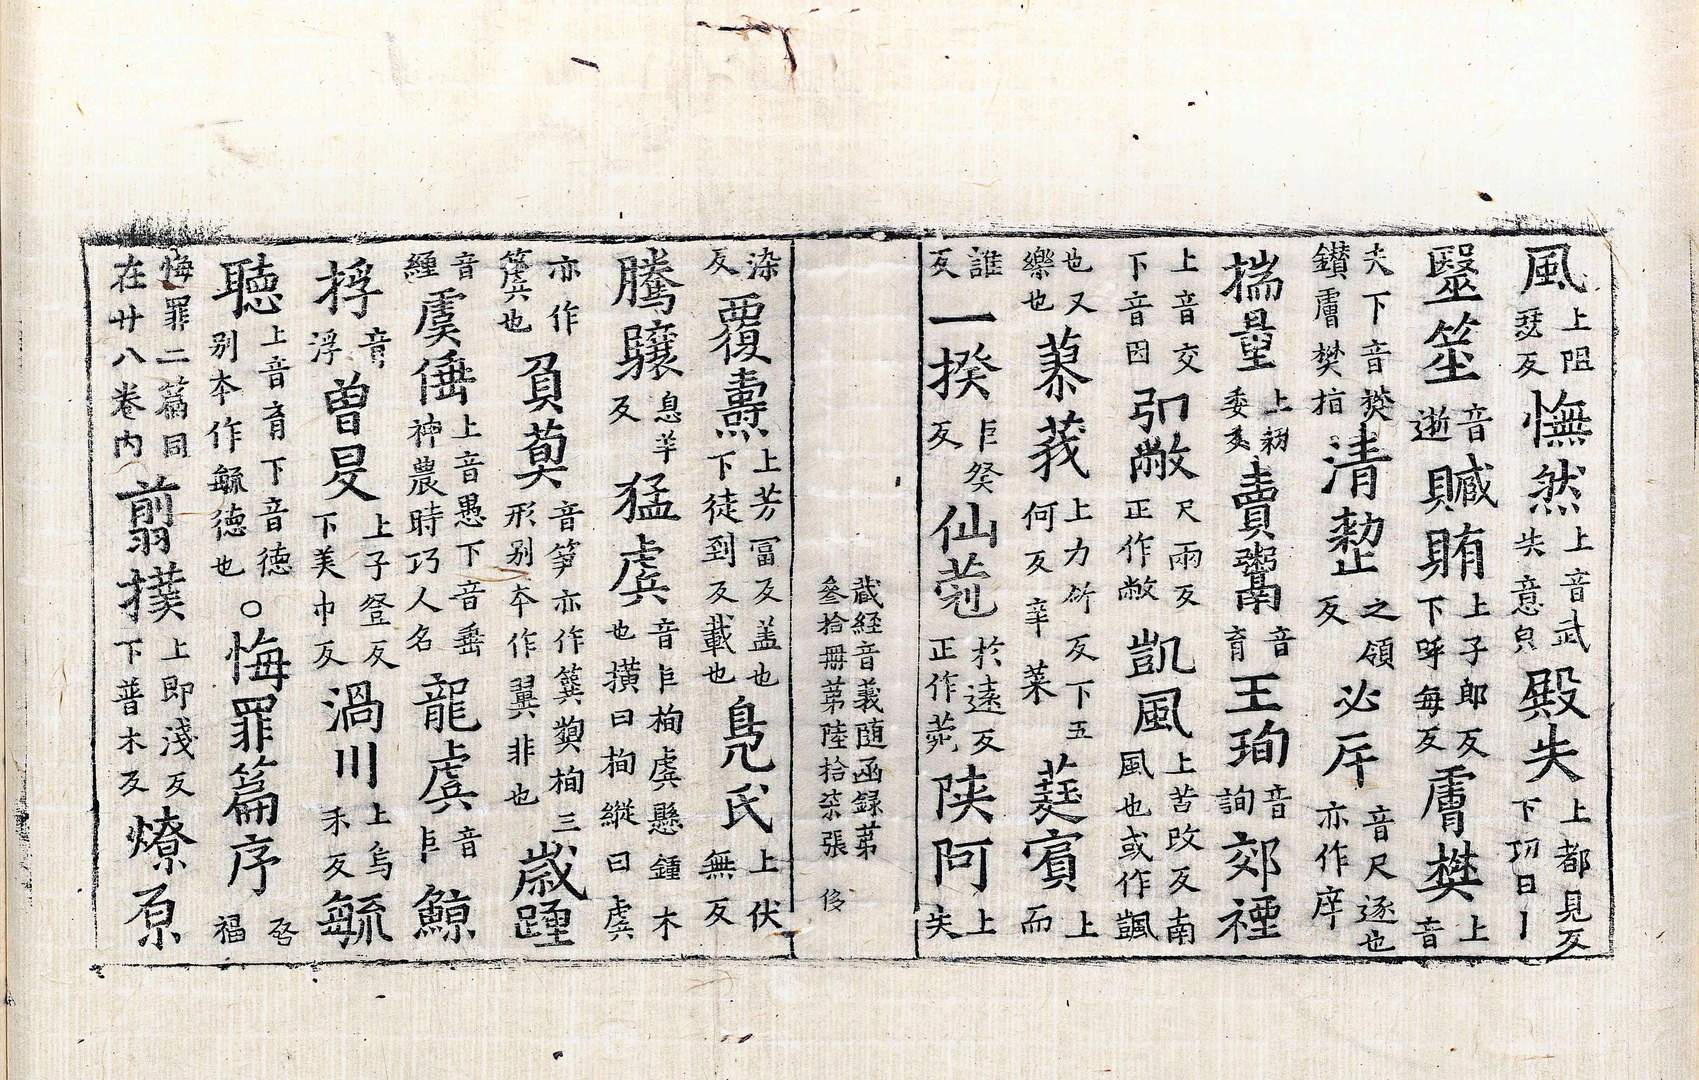 風上阻瑟反憮然上音武失意皃殿失上都見反下切日丨
毉筮音逝贓賄上子郎反下呼每反膚樊上音
夫下音樊鑚膚樊指清整之領反必斥音尺逐也亦作庠
揣量上初委反賣鬻音育王珣音詢郊禋
上音交下音因引敞尺兩反正作敞凱風上苦改反南風也或作颽
也又樂也蓁莪上力竹反下五何反辛菜蕤賔上而
誰反一揆巨癸反仙菀於遠反正作苑陜阿上失
藏経音義随函録苐
叄拾冊苐陸拾柒張 侈
染反覆燾上芳冨反盖也下徒到反載也鳧氏上伏無反
騰驤息羊反猛虡音巨栒虡懸鍾木也横曰栒縱曰虡
亦作簴也負荀音笋亦作簨栒三形别夲作翼非也歳踵
音緟虞倕上音愚下音垂神農時巧人名龍虡音巨鯨
捊音浮曽旻上子登反下美巾反渦川上烏禾反毓
聽上音育下音德别夲作毓德也○悔罪篇序啓福
悔罪二篇同在廿八卷内翦撲上即淺反下普木反燎原